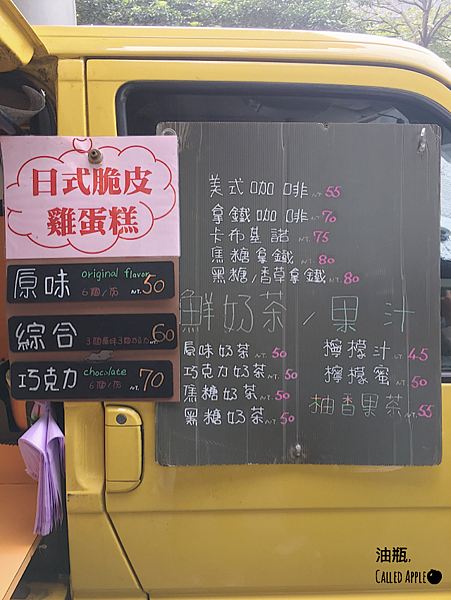 日式脆皮
雞蛋糕
原味 original flavor 6個/份 NT.50
綜合 3個原味3個巧克力 NT.60
巧克力 chocolate 6個/份 NT.70
美式咖啡 NT.55
拿鐵咖啡 NT.70
卡布基諾 NT.75
焦糖拿鐵 NT.80
黑糖/香草拿鐵 NT.80
鮮奶茶/果汁
原味奶茶 NT.50
巧克力奶茶 NT.50
焦糖奶茶 NT.50
黑糖奶茶 NT.50
檸檬汁 NT.45
檸檬蜜 NT.50
柚香果茶 NT.55
油瓶,
CALLED APPLE